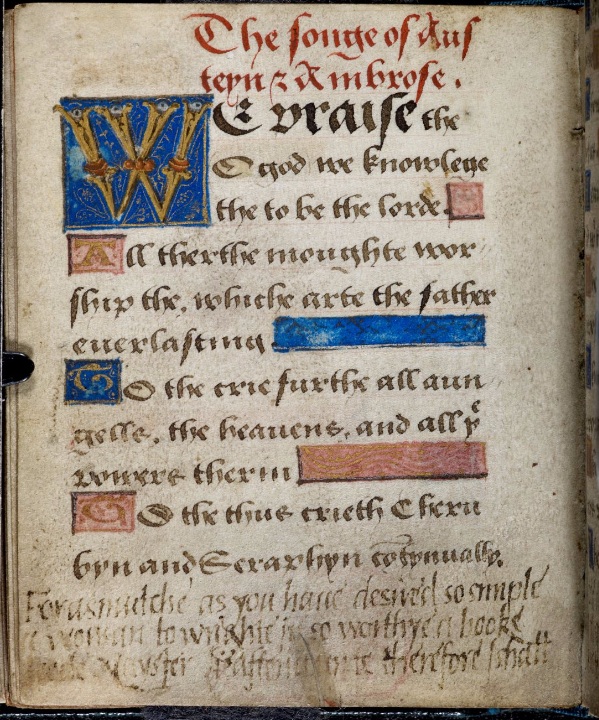 The songe of Aus
teyn ⁊ Ambrose.
WE praise the
O god we knowlege
the to be the lorde.
All therthe moughte wor
ship the, whiche arte the father
euerlasting
To the crie furthe all aun
gells, the heauens, and all yͤ
powers therin
To the thus crieth Cheru
byn and Seraphyn cōtynually.
Forasmutche as you haue desired so simple
a woman to wrighte in so worthye a booke
good Mayster therefore I shall